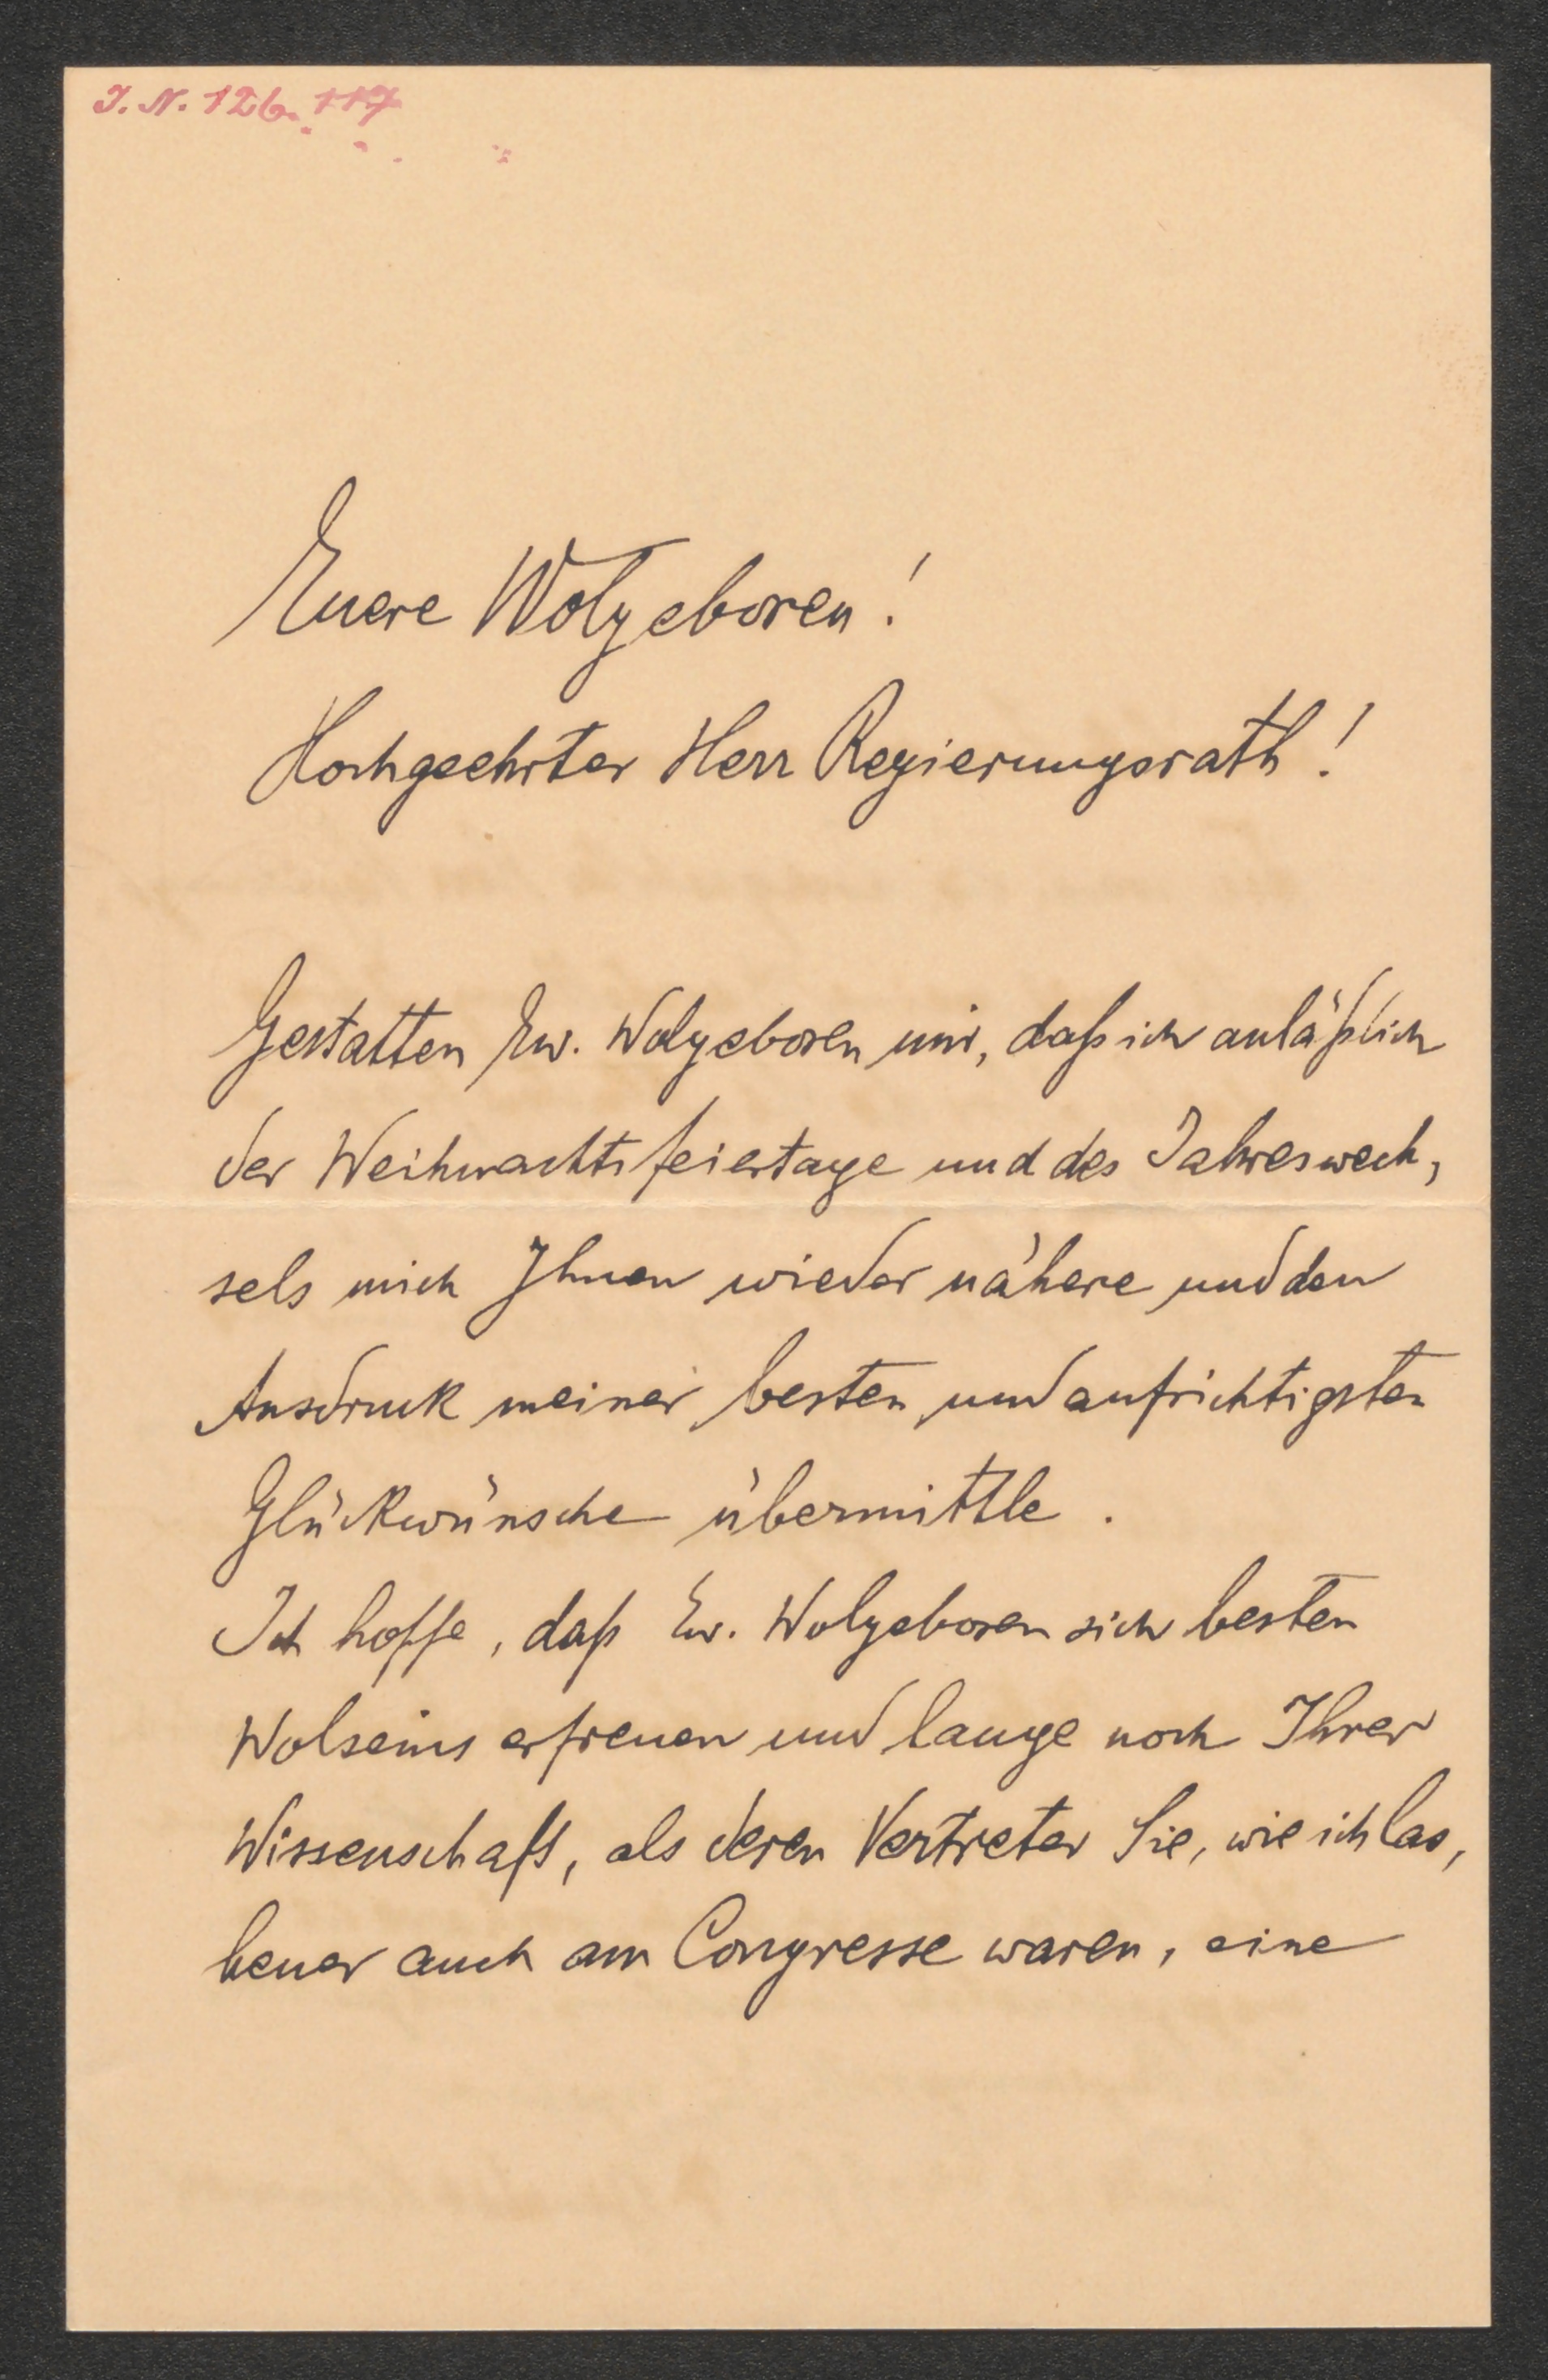 J. N. 126.117
Euere Wolgeboren!
Hochgeehrter Herr Regierungsrath!
Gestatten Ew. Wolgeboren mir, daß ich anläßlich
der Weihnachtsfeiertage und des Jahreswech,
sels mich Ihnen wieder nähere und den
Ausdruck meiner besten und aufrichtigsten
Glückwünsche übermittle.
Ich hoffe, daß Ew. Wolgeboren sich besten
Wolseins erfreuen und lange noch Ihrer
Wissenschaft, als deren Vertreter Sie, wie ich las,
heuer auch am Congresse waren, eine